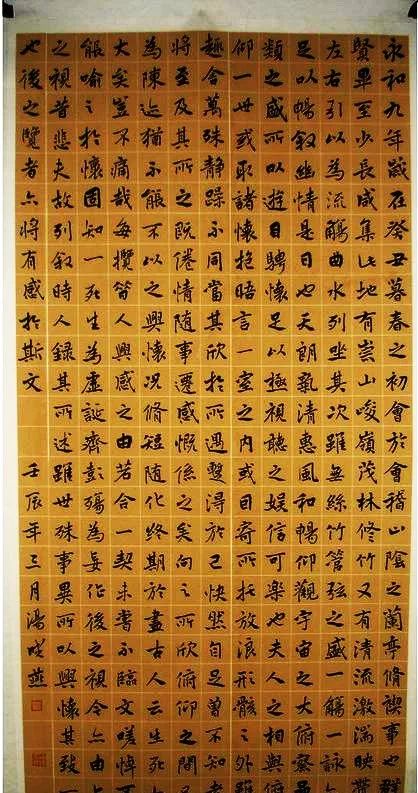 永和九年歲在癸丑暮春之初會於會稽山陰之蘭亭脩禊事也群
賢畢至少長咸集此地有崇山峻嶺茂林修竹又有清流激湍映帶
左右引以為流觴曲水列坐其次雖無絲竹管弦之盛一觴一詠亦
足以暢叙幽情是日也天朗氣清惠風和暢仰觀宇宙之大俯察品
類之盛所以遊目騁懷足以極視聽之娱信可樂也夫人之相與俯
仰一世或取諸懷抱晤言一室之内或因寄所托放浪形骸之外雖
趣舍萬殊靜躁不同當其欣於所遇暫得於己快然自足曾不知老
將至及其所之既倦情隨事遷感慨係之矣向之所欣俯仰之間已
為陳迹猶不能不以之興懷况脩短隨化終期於盡古人云生死亦
大矣豈不痛哉每攬昔人興感之由若合一契未嘗不臨文嗟悼不
能喻之於懷固知一死生為虛誕齊彭殤為妄作後之視今亦由今
之視昔悲夫故列叙時人録其所述雖世殊事異所以興懷其致一
也後之覽者亦將有感於斯文 壬辰年三月湯